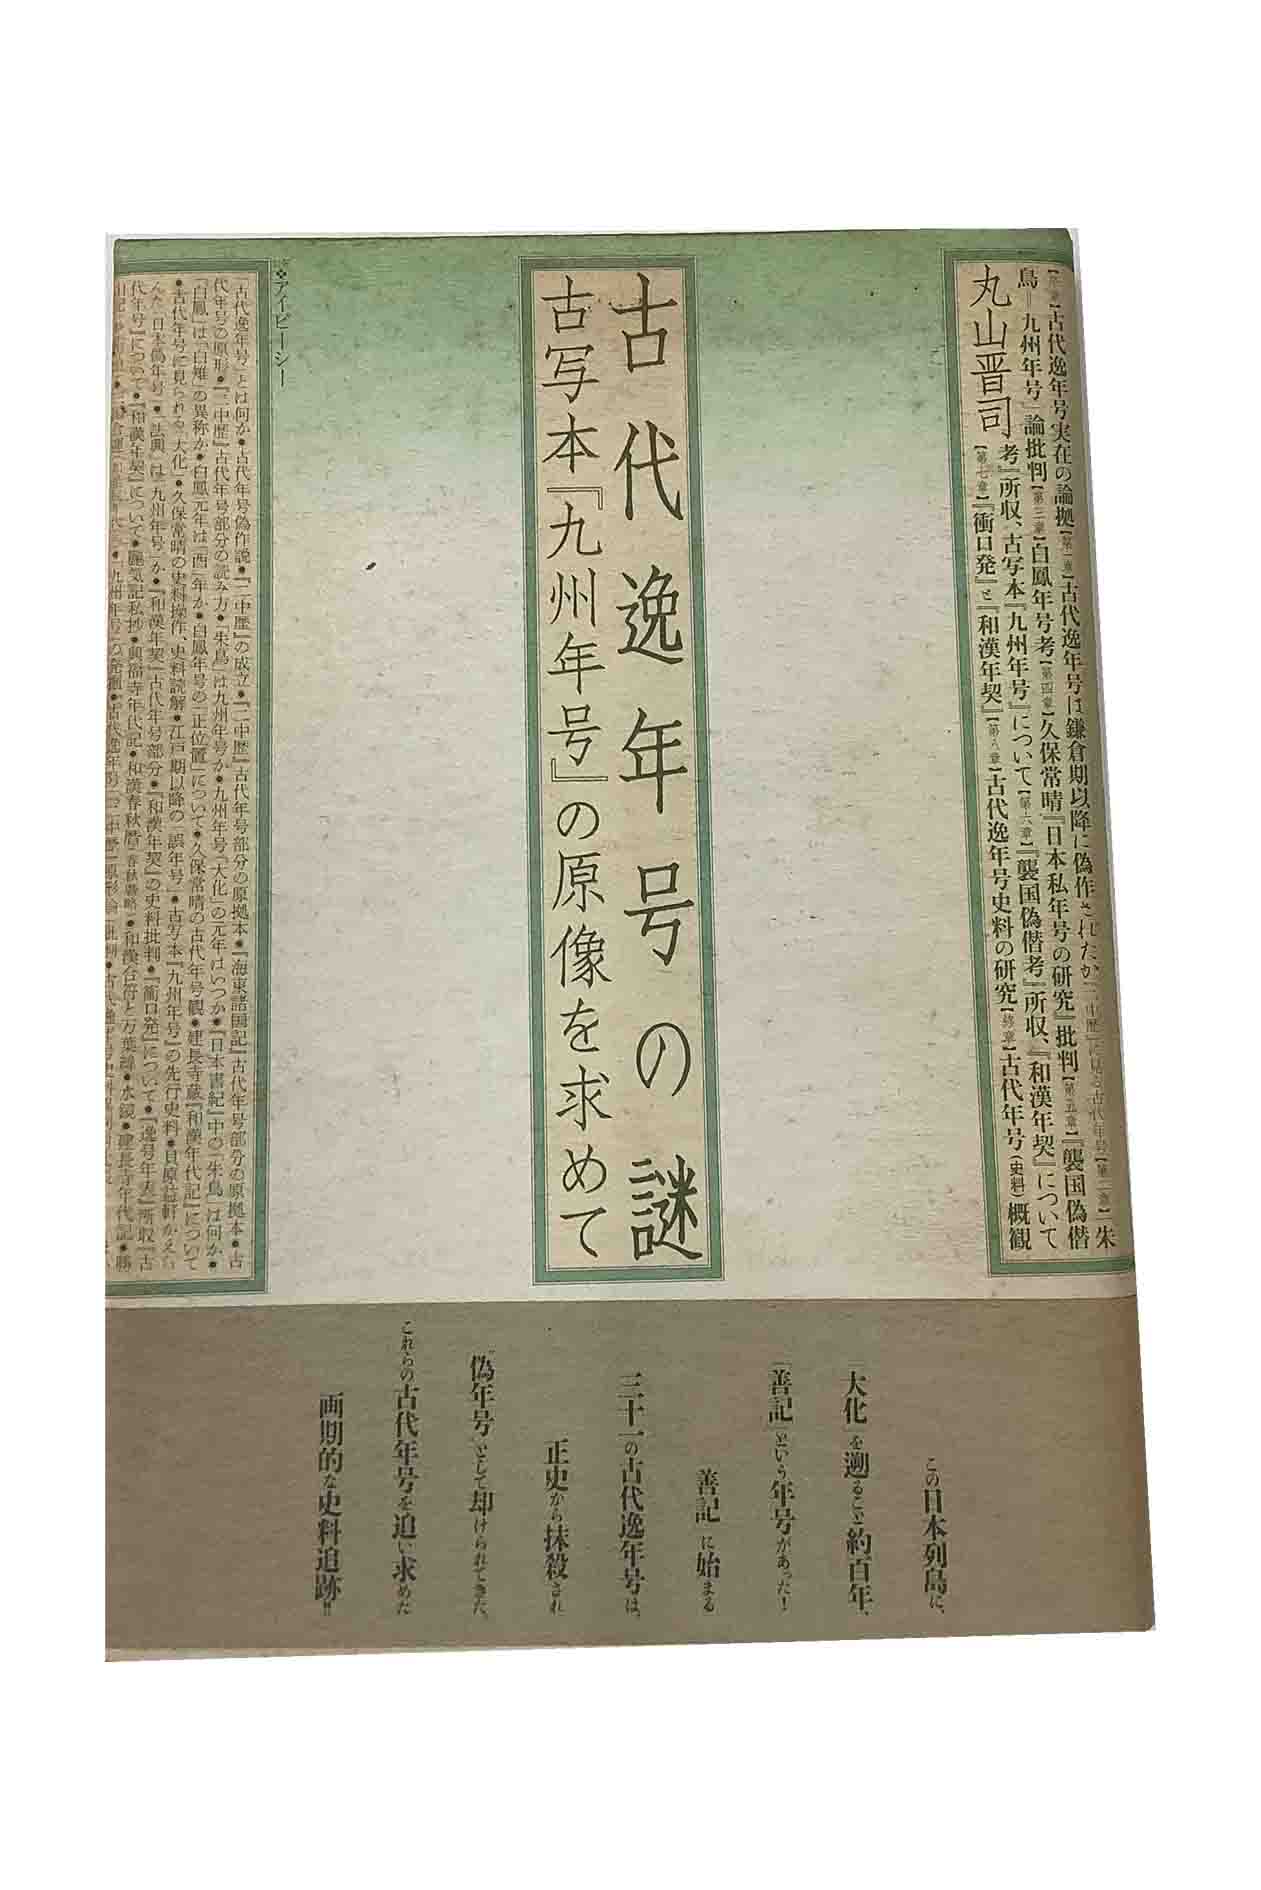 【序章】古代逸年号実在の論拠【第一章】古代逸年号は鎌倉期以降に偽作されたか『二中歴』に見る古代年号【第二章】「朱
鳥＝九州年号」論批判【第三章】白鳳年号考【第四章】久保常晴『日本私年号の研究』批判【第五章】『襲国偽僭
考』所収、古写本『九州年号』について【第六章】『襲国偽僭考』所収、『和漢年契』について
【第七章】『衝口発』と『和漢年契』【第八章】古代逸年号史料の研究【終章】古代年号(史料)概観
丸山晋司
古代逸年号の謎
古写本『九州年号』の原像を求めて
❖アイピーシー
「古代逸年号」とは何か●古代年号偽作説●『二中歴』の成立●『二中歴』古代年号部分の原拠本●『海東諸国記』古代年号部分の原拠本●古
代年号の原形●『二中歴』古代年号部分の読み方●「朱鳥」は九州年号か●九州年号「大化」の元年はいつか●『日本書紀』中の「朱鳥」は何か●
「白鳳」は「白雉」の異称か●白鳳元年は「酉」年か●白鳳年号の「正位置」について●久保常晴の古代年号観●建長寺蔵『和漢年代記』について
●古代年号に見られる「大化」●久保常晴の史料操作、史料読解●江戸期以降の「誤年号」●古写本『九州年号』の先行史料●貝原益軒がえら
んだ「日本偽年号」●「法興」は「九州年号」か●『和漢年契』古代年号部分●『和漢年契』の史料批判●『衝口発』について●『逸号年表』所収『古
代年号』について●『和漢年契』について●麗気記私抄●興福寺年代記●和漢春秋暦(春秋暦略)●和漢合符と万葉緯●水鏡●建長寺年代記●勝
この日本列島に、
「大化」を遡ること約百年、
「善記」という年号があった!
「善記」に始まる
三十一の古代逸年号は、
正史から抹殺され
"偽年号"として却けられてきた。
これらの古代年号を追い求めた
画期的な史料追跡!!